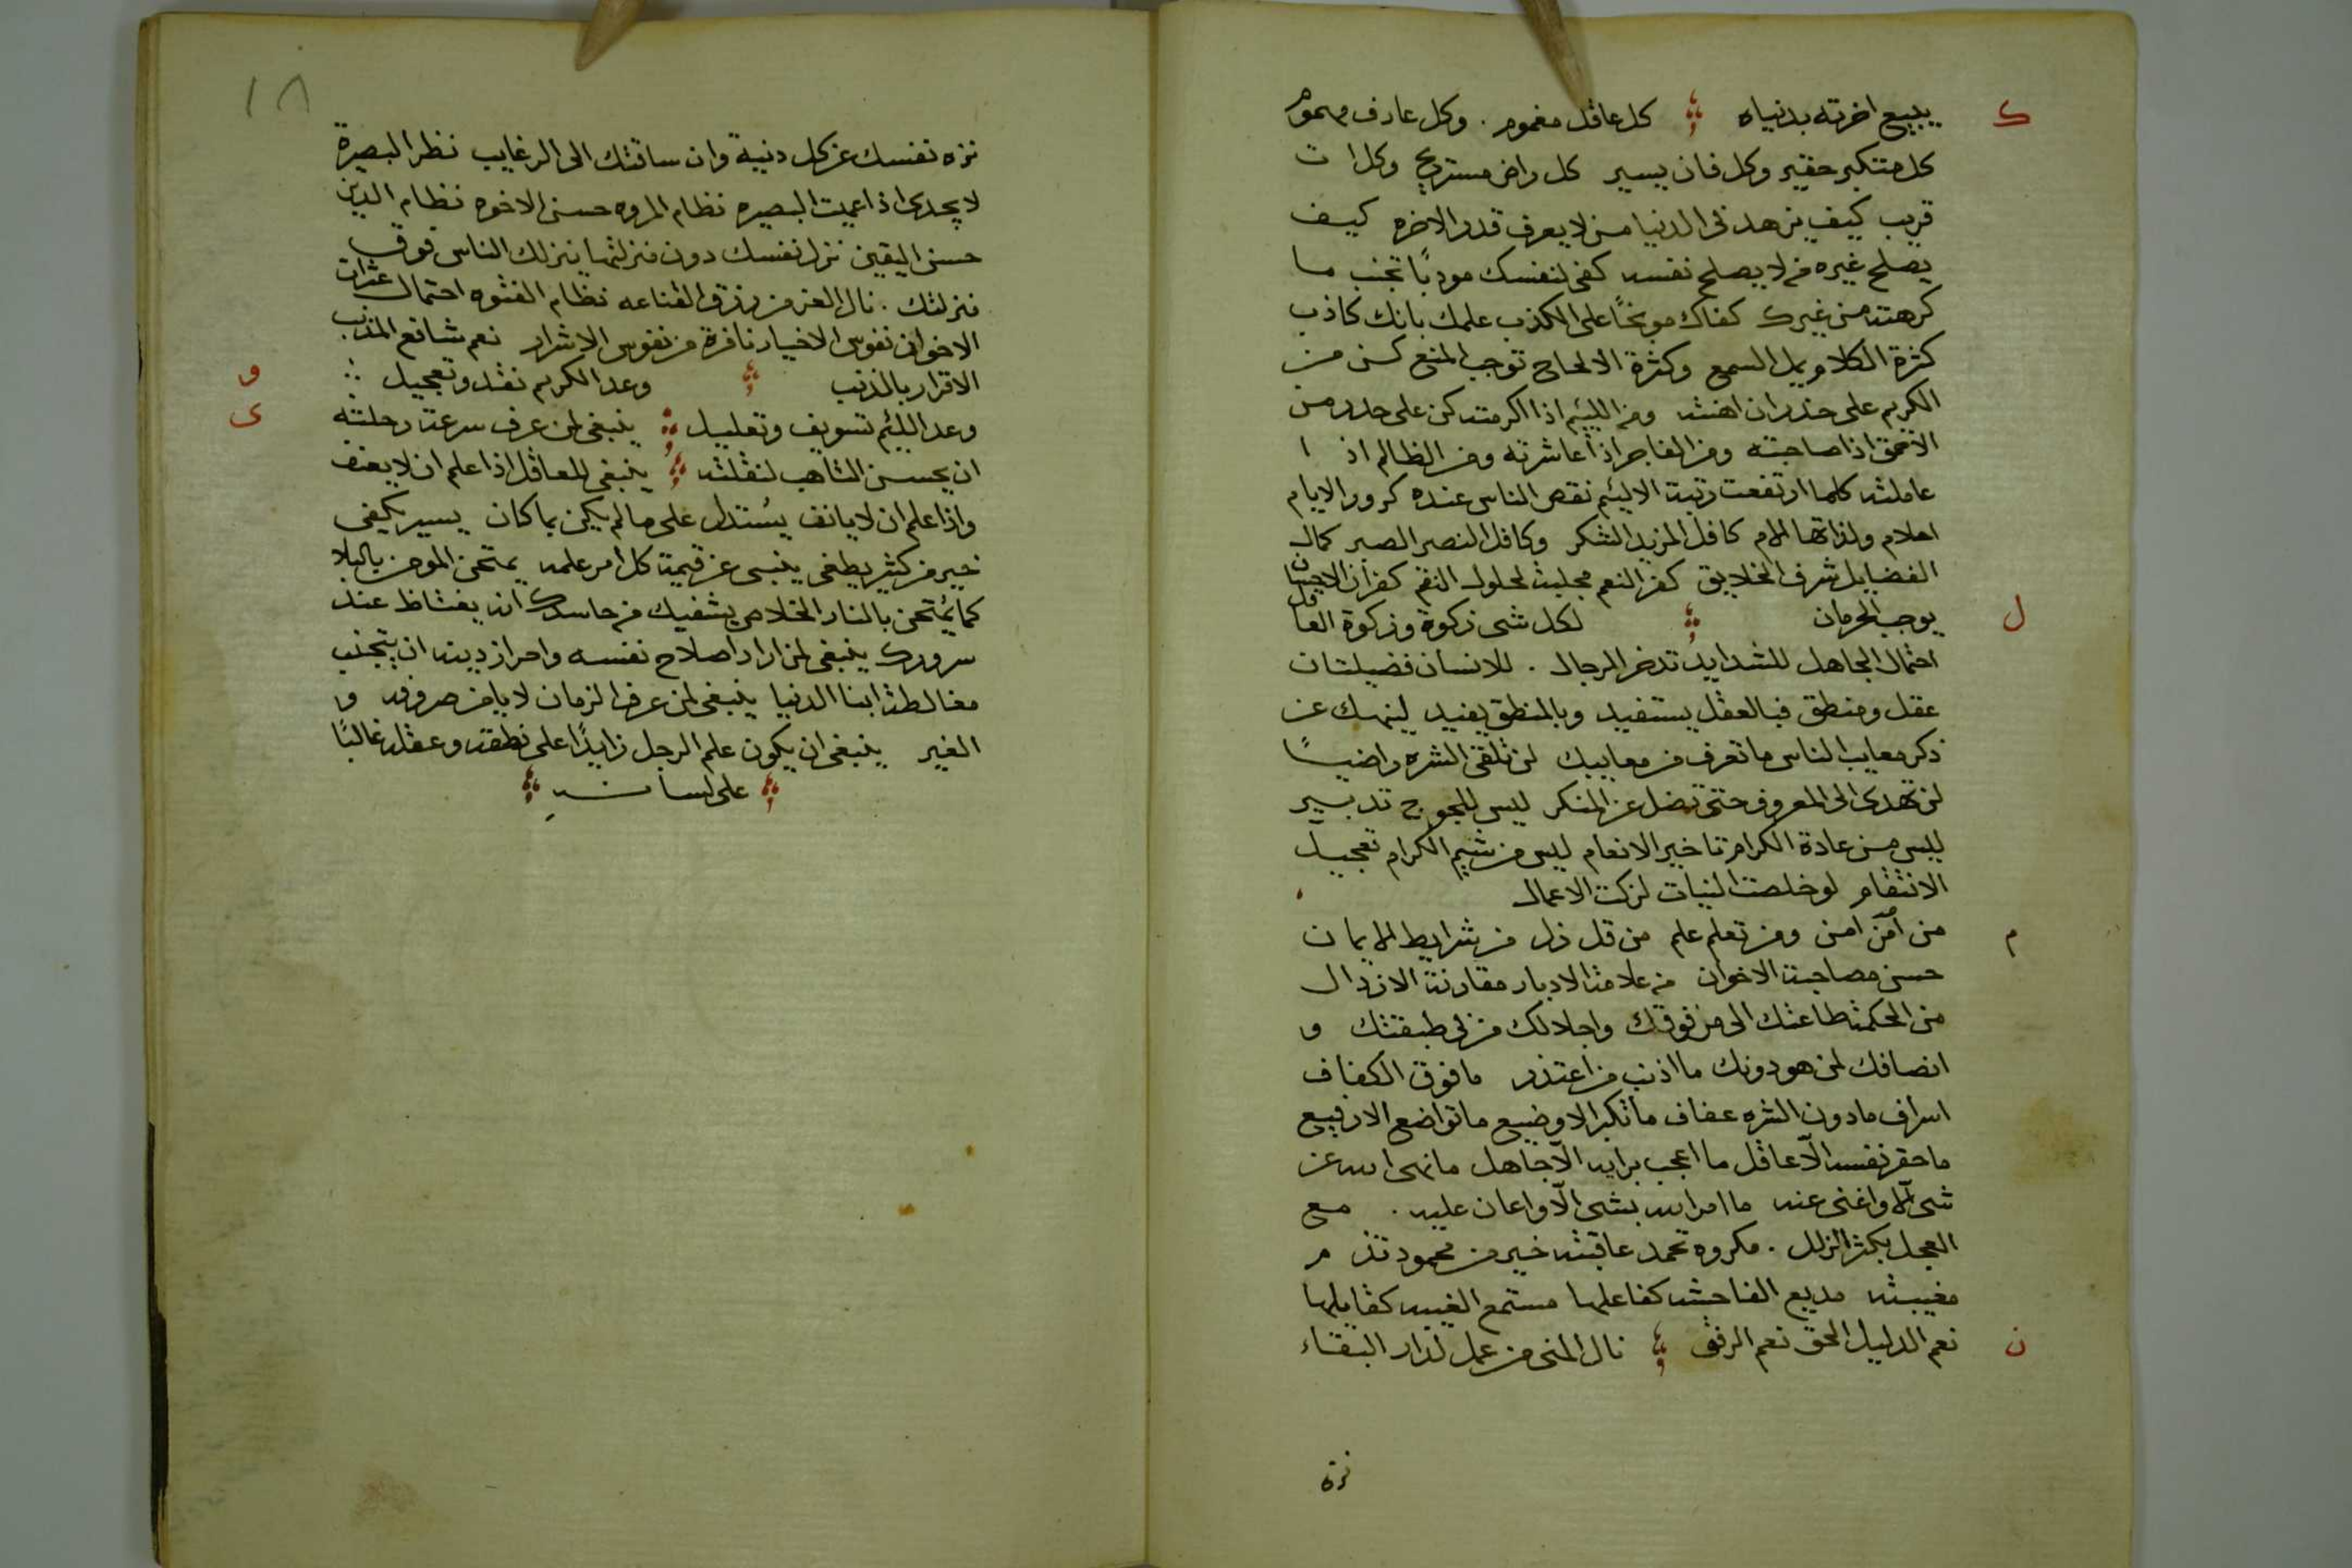 ك
يبيع اخرته بدنياه كل عاقل مغموم . وكل عارف مهموم
كل متكبر حقير وكل فان يسير كل راض مستريح وكل ات
قريب كيف يزهد فى الدنيا من لا يعرف قدر الاخره كيف
يصلح غيره من لا يصلح نفسه كفى لنفسك مودبًا تجنب ما
كرهته من غيرك كفاك موبخًا على الكذب علمك بانك كاذب
كثرة الكلام يمل السمع وكثرة الالحاح توجب المنع كن من
الكريم على حذر ان اهنته ومن الليئم اذا اكرمته كن على حذر من
الاحمق اذا صاحبته ومن الفاجر اذا عاشرته ومن الظالم اذا
عاملته كلما ارتفعت رتبة الاليئم نقص الناس عنده كرور الايام
احلام ولذاتها الام كافل المزيد الشكر وكافل النصر الصبر كمال
الفضايل شرف الخلايق كفر النعم مجلبة لحلول النقم كفران الاحسان
ل
يوجب الحرمان لكل شى زكوة وزكوة العاقل
احتمال الجاهل للشدايد تدخر الرجال . للانسان فضيلتان
عقل ومنطق فبالعقل يستفيد وبالمنطق يفيد لينهك عن
ذكر معايب الناس ما تعرف من معاييبك لن تلقى الشره راضيًا
لن تهدى الى المعروف حتى تضل عن المنكر ليس للجوج تدبير
ليس من عادة الكرام تاخير الانعام ليس من شيم الكرام تعجيل
الانتقام لو خلصت النيات لزكت الاعمال
م
من آمن امن ومن تعلم علم من قل ذل من شرايط الايمان
حسن مصاحبة الاخوان من علامة الادبار مقارنة الارذال
من الحكمة طاعتك الى من فوقك واجلالك من فى طبقتك و
انصافك لمن هو دونك ما اذنب من اعتذر ما فوق الكفاف
اسراف ما دون الشره عفاف ما تكبر الا وضيع ما تواضع الا رفيع
ما حقر نفسه الّا عاقل ما اعجب برايه الّا جاهل ما نهى الله عن
شى الّا واغنى عنه ما امر الله بشى الّا واعان عليه . مع
العجل يكثر الزلل . مكروه تحمد عاقبته خير من محمود تذم
مغيبته مذيع الفاحشه كفاعلها مستمع الغيبه كقايلها
ن
نعم الدليل الحق نعم الرفق نال المنى من عمل لدار البقاء
نزه
١٨
نزه نفسك عن كل دنية وان ساقتك الى الرغايب نظر البصرة
لا يجدى اذا عميت البصيره نظام المروه حسن الاخوه نظام الدين
حسن اليقين نزل نفسك دون منزلتها ينزلك الناس فوق
منزلتك . نال العز من رزق القناعه نظام الفتوه احتمال عثرات
الاخوان نفوس الاخيار نافرة من نفوس الاشرار نعم شافع المذنب
الاقرار بالذنب وعد الكريم نقد وتعجيل
و
وعد الليئم تسويف وتعليل ينبغى لمن عرف سرعة رحلته
ى
ان يحسن التاهب لنقلته ينبغى للعاقل اذا علم ان لا يعنف
واذا علم ان لا يانف يستدل على ما لم يكن بما كان يسير يكفى
خير من كثير يطغى ينبى عن قيمة كل امر علمه يمتحن المومن بالبلا
كما يمتحن بالنار الخلاص يشفيك من حاسدك انه يغتاظ عند
سرورك ينبغى لمن اراد اصلاح نفسه واحراز دينه ان يتجنب
مغالطة ابنا الدنيا ينبغى لمن عرف الزمان لا يامن صروفه و
الغير ينبغى ان يكون علم الرجل زايدًا على نطقه وعقله غالبًا
على لسانه